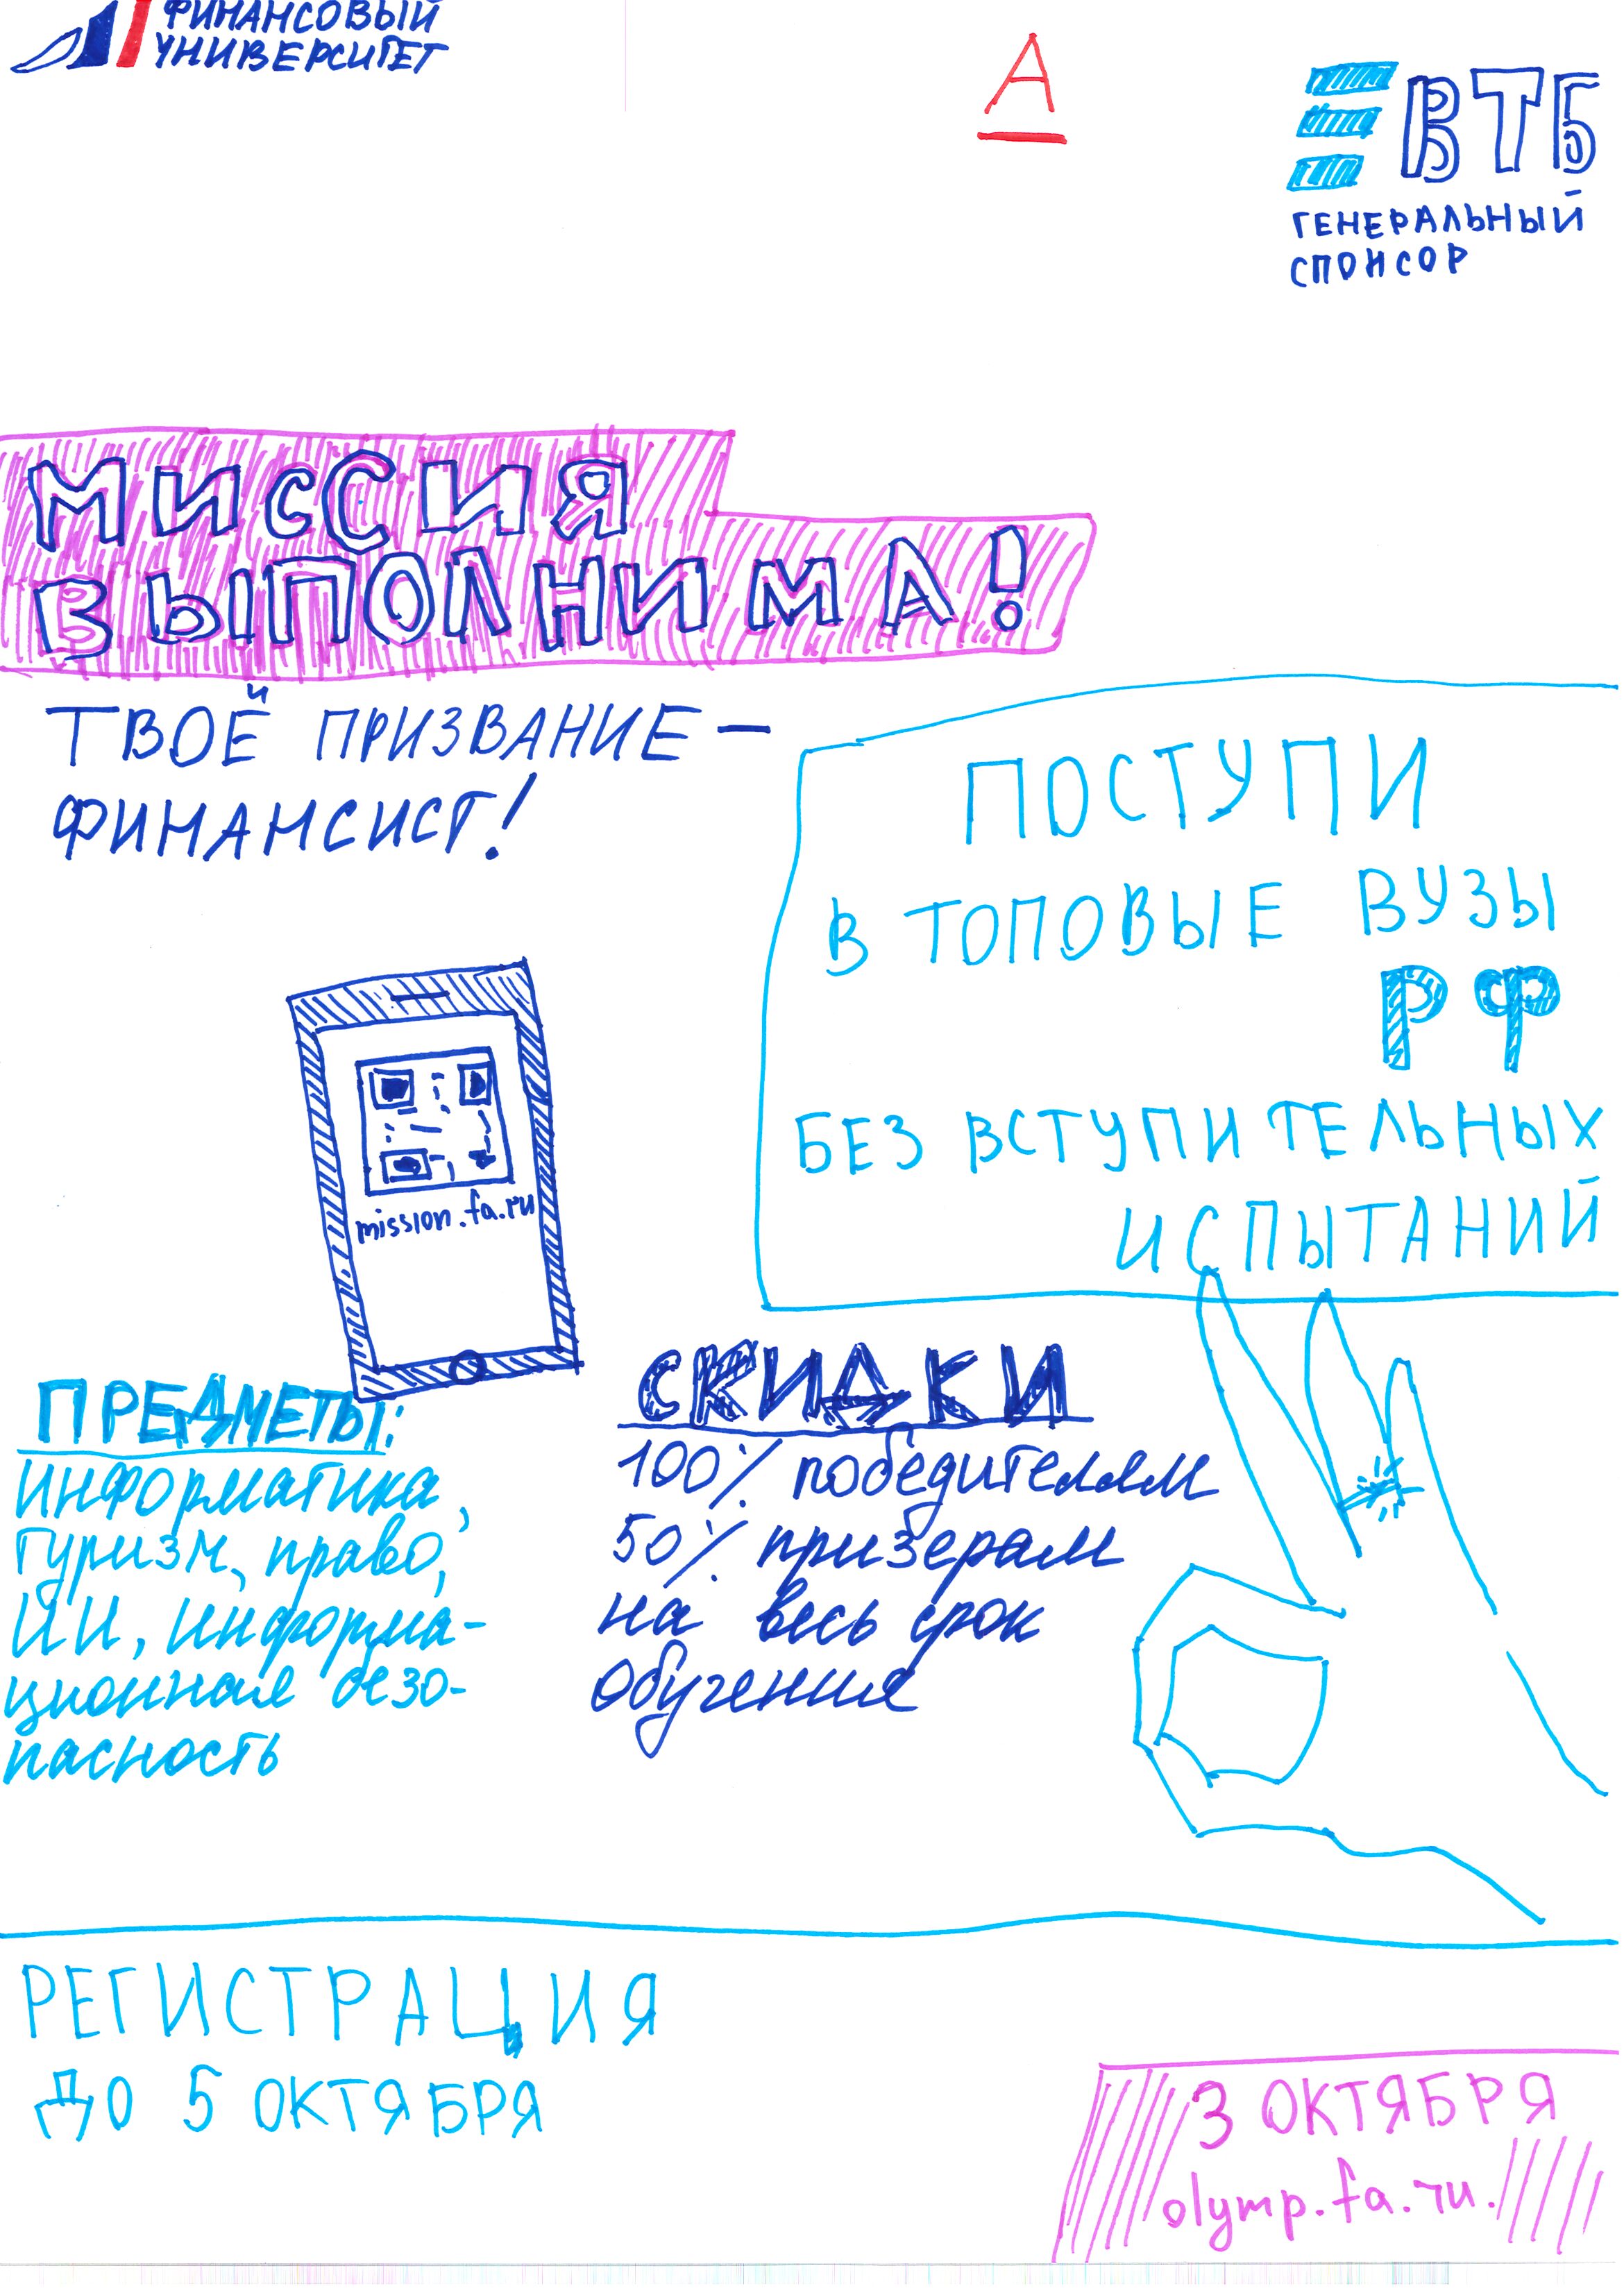 ФИНАНСОВЫЙ
УНИВЕРСИТЕТ
А
ВТБ
ГЕНЕРАЛЬНЫЙ
СПОНСОР
МИССИЯ
ВЫПОЛНИМА!
ТВОЁ ПРИЗВАНИЕ —
ФИНАНСИСТ!
ПОСТУПИ
В ТОПОВЫЕ ВУЗЫ
РФ
БЕЗ ВСТУПИТЕЛЬНЫХ
ИСПЫТАНИЙ
mission.fa.ru
ПРЕДМЕТЫ:
информатика,
туризм, право,
ИИ, информа-
ционная безо-
пасность
СКИДКИ
100% победителям
50% призерам
на весь срок
обучения
РЕГИСТРАЦИЯ
ДО 5 ОКТЯБРЯ
3 ОКТЯБРЯ
olymp.fa.ru.